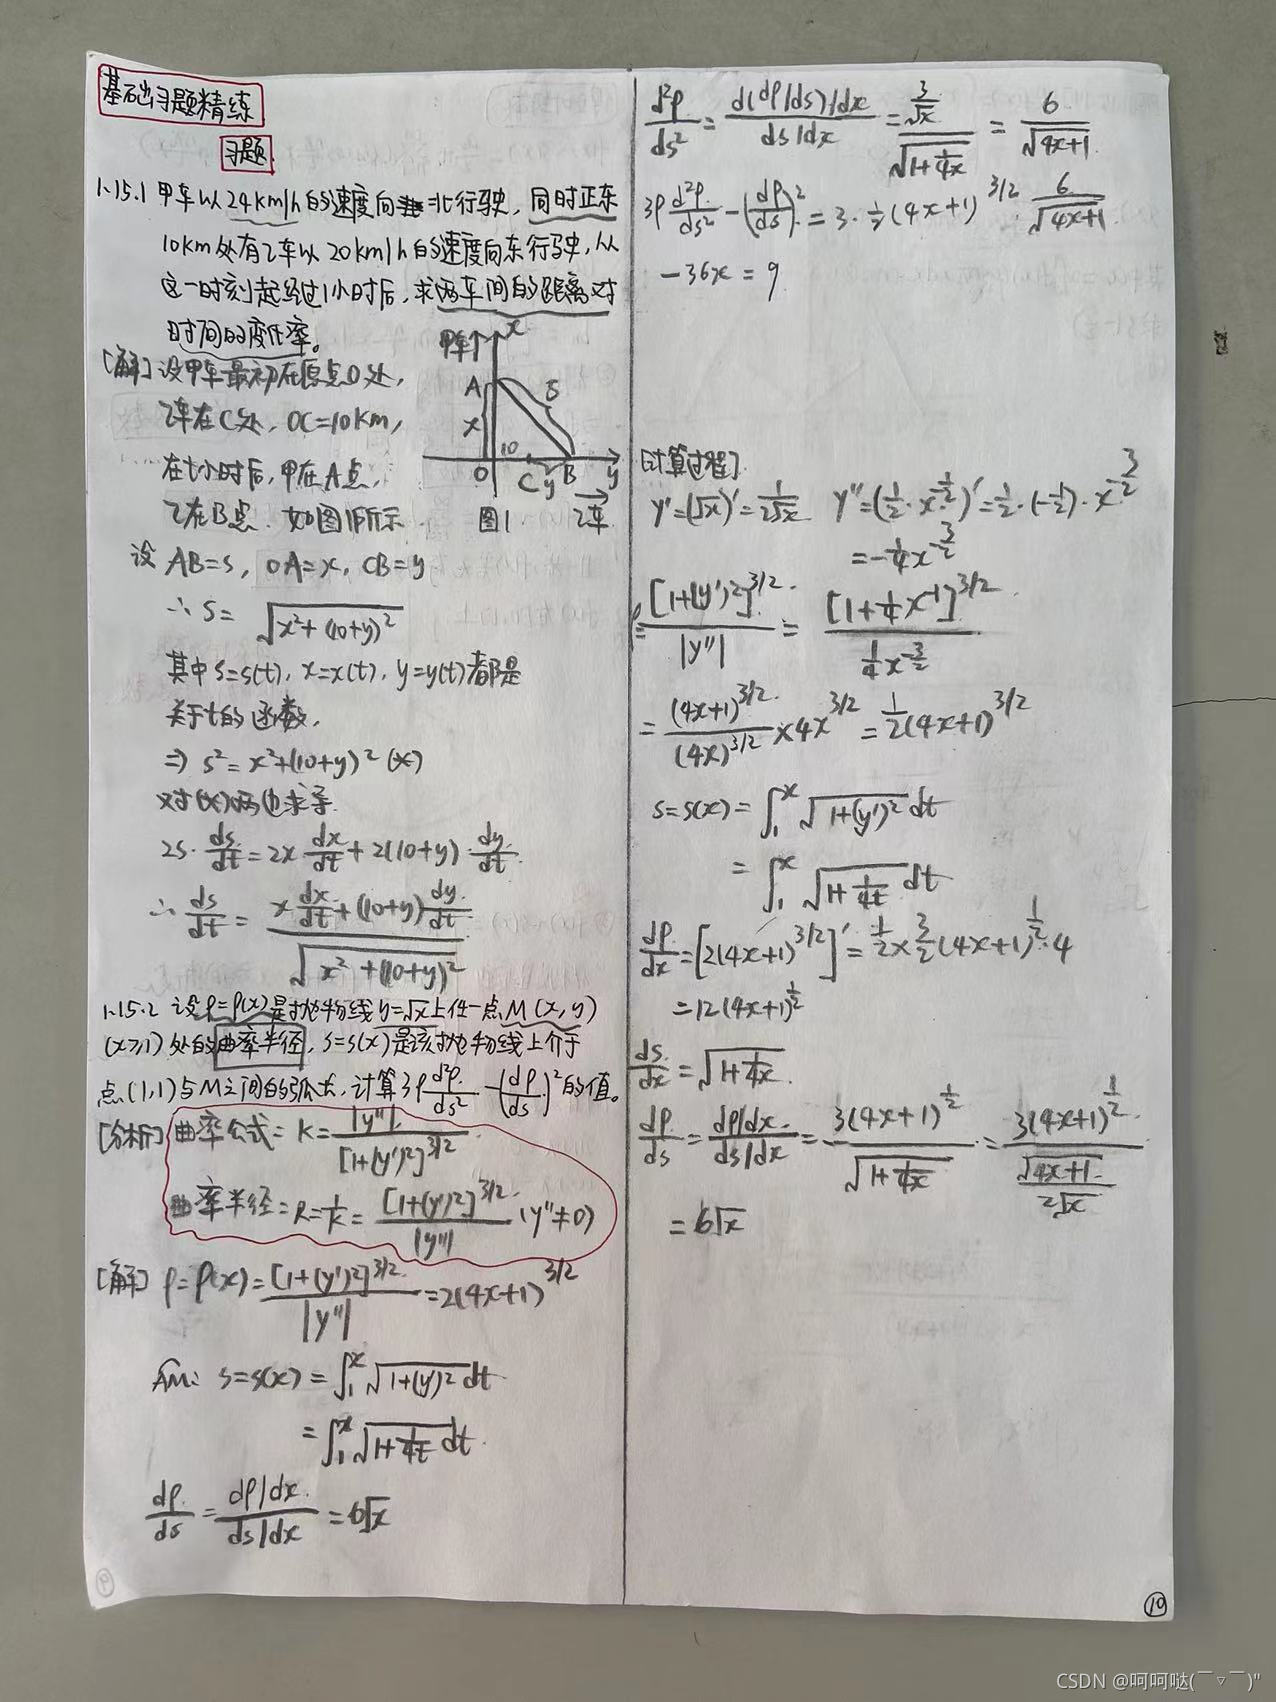 基础习题精练
习题
1.15.1 甲车以24km/h的速度向北行驶，同时正东
10km处有乙车以20km/h的速度向东行驶，从
这一时刻起经过1小时后，求两车间的距离对
时间的变化率。
[解] 设甲车最初在原点O处，
乙车在C处，OC=10km，
在t小时后，甲在A点，
乙在B点．如图1所示
甲车↑ x
A S
x 10
O C y B y
图1 乙车
设 AB=s，OA=x，CB=y
∴ S= √(x²+(10+y)²)
其中 s=s(t)，x=x(t)，y=y(t)都是
关于t的函数，
⇒ s²=x²+(10+y)² (*)
对(*)两边求导
2s·ds/dt=2x·dx/dt+2(10+y)·dy/dt
∴ ds/dt=(x dx/dt+(10+y)dy/dt)/√(x²+(10+y)²)
1.15.2 设ρ=ρ(x)是抛物线y=√x上任一点M(x,y)
(x≥1)处的曲率半径，s=s(x)是该抛物线上介于
点(1,1)与M之间的弧长，计算3ρ d²ρ/ds²-(dρ/ds)²的值。
[分析] 曲率公式= K=|y''|/[1+(y')²]^3/2
曲率半径=R=1/K=[1+(y')²]^3/2/|y''| (y''≠0)
[解] ρ=ρ(x)=[1+(y')²]^3/2/|y''|=2(4x+1)^3/2
AM: s=s(x)=∫₁ˣ√(1+(y')²)dt
=∫₁ˣ√(1+1/4t)dt
dρ/ds=(dρ/dx)/(ds/dx)=6√x
9
d²ρ/ds²=(d(dρ/ds)/dx)/(ds/dx)=(3/√x)/√(1+1/4x)=6/√(4x+1)
3ρ d²ρ/ds²-(dρ/ds)²=3·1/2(4x+1)^3/2·6/√(4x+1)
-36x=9
[计算过程]
y'=(√x)'=1/2√x y''=(1/2·x^-1/2)'=1/2·(-1/2)·x^-3/2
=-1/4x^-3/2
ρ=[1+(y')²]^3/2/|y''|=[1+1/4x^-1]^3/2/(1/4x^-3/2)
=(4x+1)^3/2/(4x)^3/2×4x^3/2=1/2(4x+1)^3/2
s=s(x)=∫₁ˣ√(1+(y')²)dt
=∫₁ˣ√(1+1/4t)dt
dρ/dx=[2(4x+1)^3/2]'=1/2×3/2(4x+1)^1/2·4
=12(4x+1)^1/2
ds/dx=√(1+1/4x)
dρ/ds=(dρ/dx)/(ds/dx)=3(4x+1)^1/2/√(1+1/4x)=3(4x+1)^1/2/(√(4x+1)/2√x)
=6√x
10
CSDN @呵呵哒(￣▽￣)"